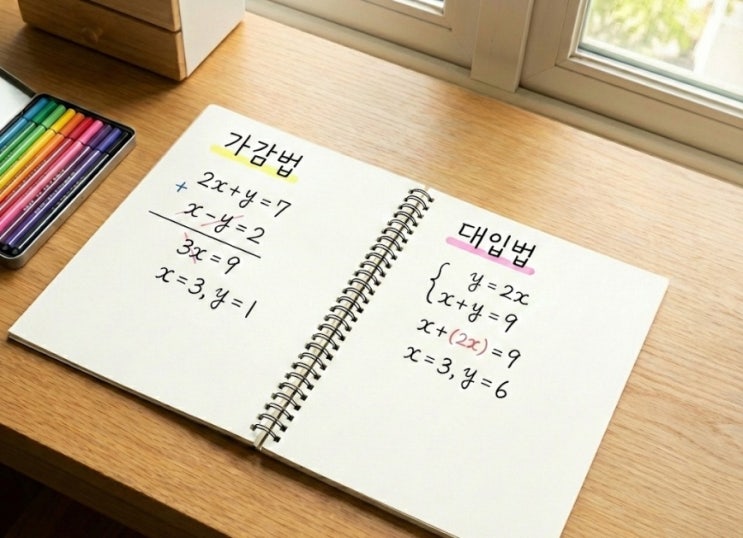 가감법
+ 2x+y=7
x-y=2
3x=9
x=3, y=1
대입법
y=2x
x+y=9
x+(2x)=9
x=3, y=6